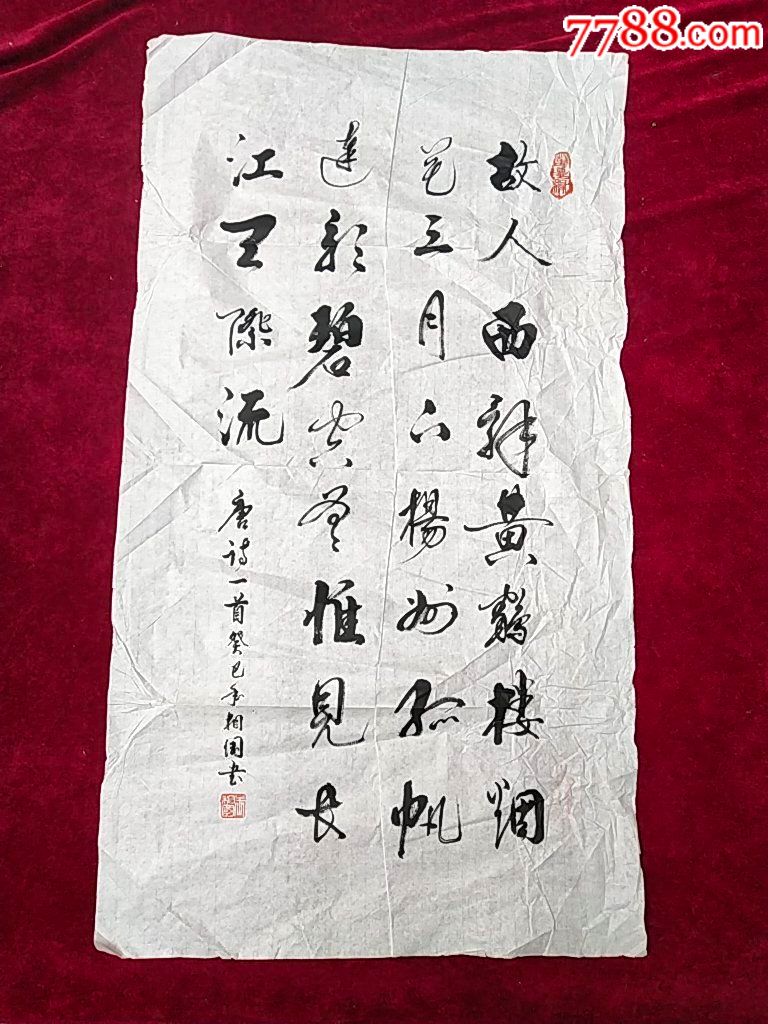 7788.com
故人西辞黄鶴楼烟
花三月下楊州孤帆
遠影碧空尽惟見長
江天際流
唐诗一首癸巳年國书